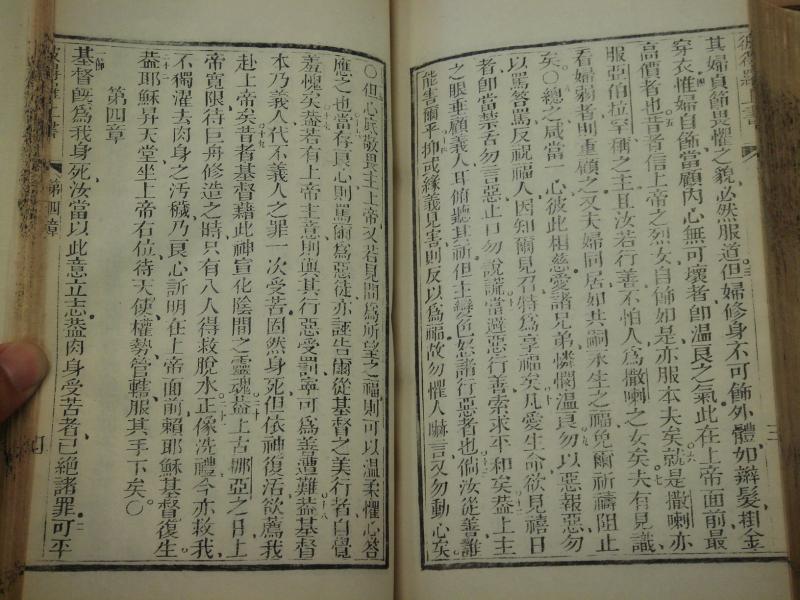 其婦貞節畏懼之貌必然服道但婦修身不可飾外體如辮髮掛金
穿衣惟婦自飾當顧內心無可壞者即溫良之氣此在上帝面前最
高價者也昔者信上帝之烈女自飾如是亦服本夫矣就是撒喇亦
服亞伯拉罕稱之主且汝若行善不怕人為撒喇之女矣夫有見識
看婦弱者則重顧之又夫婦同居如共嗣永生之福免爾祈禱阻止
矣○總之咸當一心彼此相慈愛諸兄弟憐憫溫良勿以惡報惡勿
以罵答罵反祝福人因知爾見召特為享福矣凡愛生命欲見禧日
者即當禁舌勿言惡止口勿說謊當避惡行善索求平和矣蓋上主
之眼垂顧義人耳俯聽其祈但主變色怒諸行惡者也倘汝從善誰
能害爾乎抑或緣義見害則反以為福故勿懼人嚇言又勿動心矣
○但心底敬畏主上帝又若見問為所望之福則可以溫柔懼心答
應之也當存良心則罵爾為惡徒亦誣告爾從基督之美行者自覺
羞愧矣蓋若有上帝主意則與其行惡受罰寧可為善遭難蓋基督
本乃義人代不義人之罪一次受苦固然身死但依神復活欲薦我
赴上帝矣昔者基督藉此神宣化陰間之靈魂蓋上古挪亞之日上
帝寬限待巨舟修造之時只有八人得救脫水正像洗禮今亦救我
不獨濯去肉身之污穢乃良心訴明在上帝面前賴耶穌基督復生
蓋耶穌昇天堂坐上帝右位待天使權勢管轄服其手下矣○
第四章
基督既為我身死汝當以此意立志蓋肉身受苦者已絕諸罪可平
第四章